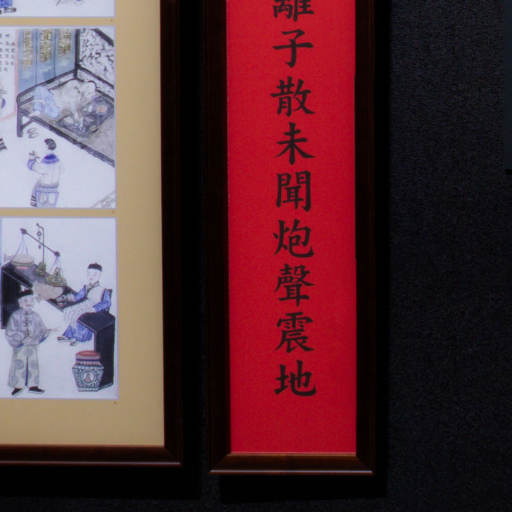 離子散未聞炮聲震地